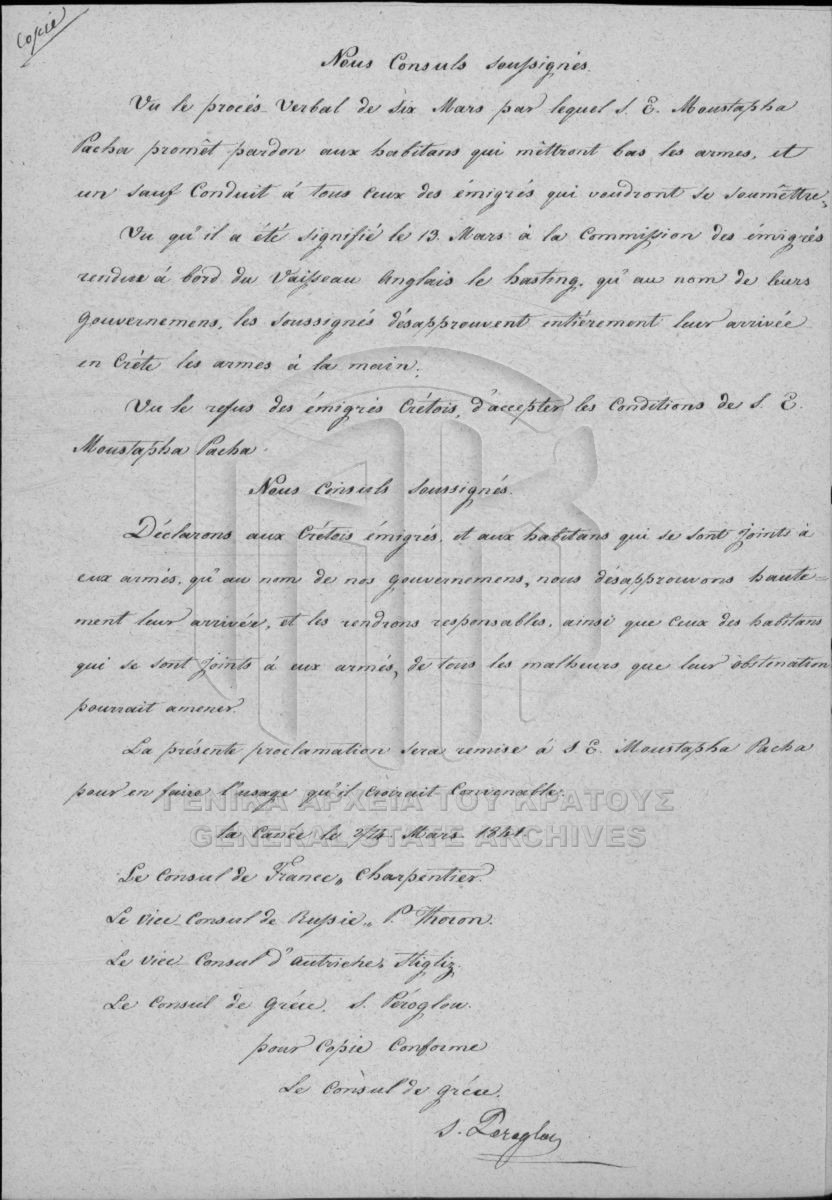 Copie
Nous Consuls soussignés.
Vu le procés-Verbal de six Mars par lequel S. E. Moustapha
Pacha promêt pardon aux habitans qui mêttront bas les armes, et
un sauf Conduit à tous ceux des émigrés qui voudront se soumêttre,
Vu qu'il a été signifié le 13. Mars à la Commission des émigrés
rendue à bord du Vaisseau Anglais le hasting, qu'au nom de leurs
gouvernemens, les soussignés désapprouvent entiérement leur arrivée
en Crète les armes à la main,
Vu le refus des émigrés Crétois, d'accepter les Conditions de S. E.
Moustapha Pacha.
Nous Consuls soussignés.
Déclarons aux Crétois émigrés, et aux habitans qui se sont joints à
eux armés, qu'au nom de nos gouvernemens, nous désapprouvons haute=
ment leur arrivée, et les rendrons responsables, ainsi que ceux des habitans
qui se sont joints à eux armés, de tous les malheurs que leur obstination
pourrait amener.
La présente proclamation sera remise à S. E. Moustapha Pacha
pour en faire l'usage qu'il croirait Convenable.
ΓΕΝΙΚΑ ΑΡΧΕΙΑ ΤΟΥ ΚΡΑΤΟΥΣ
GENERAL STATE ARCHIVES
la Canée le 2/14 Mars 1841
Le Consul de France, Charpentier.
Le vice-Consul de Russie, P. Thoron.
Le vice-Consul d'Autriche, Stigliz.
Le Consul de Gréce, S. Péroglou.
pour Copie Conforme
Le Consul de gréce.
S. Peroglou